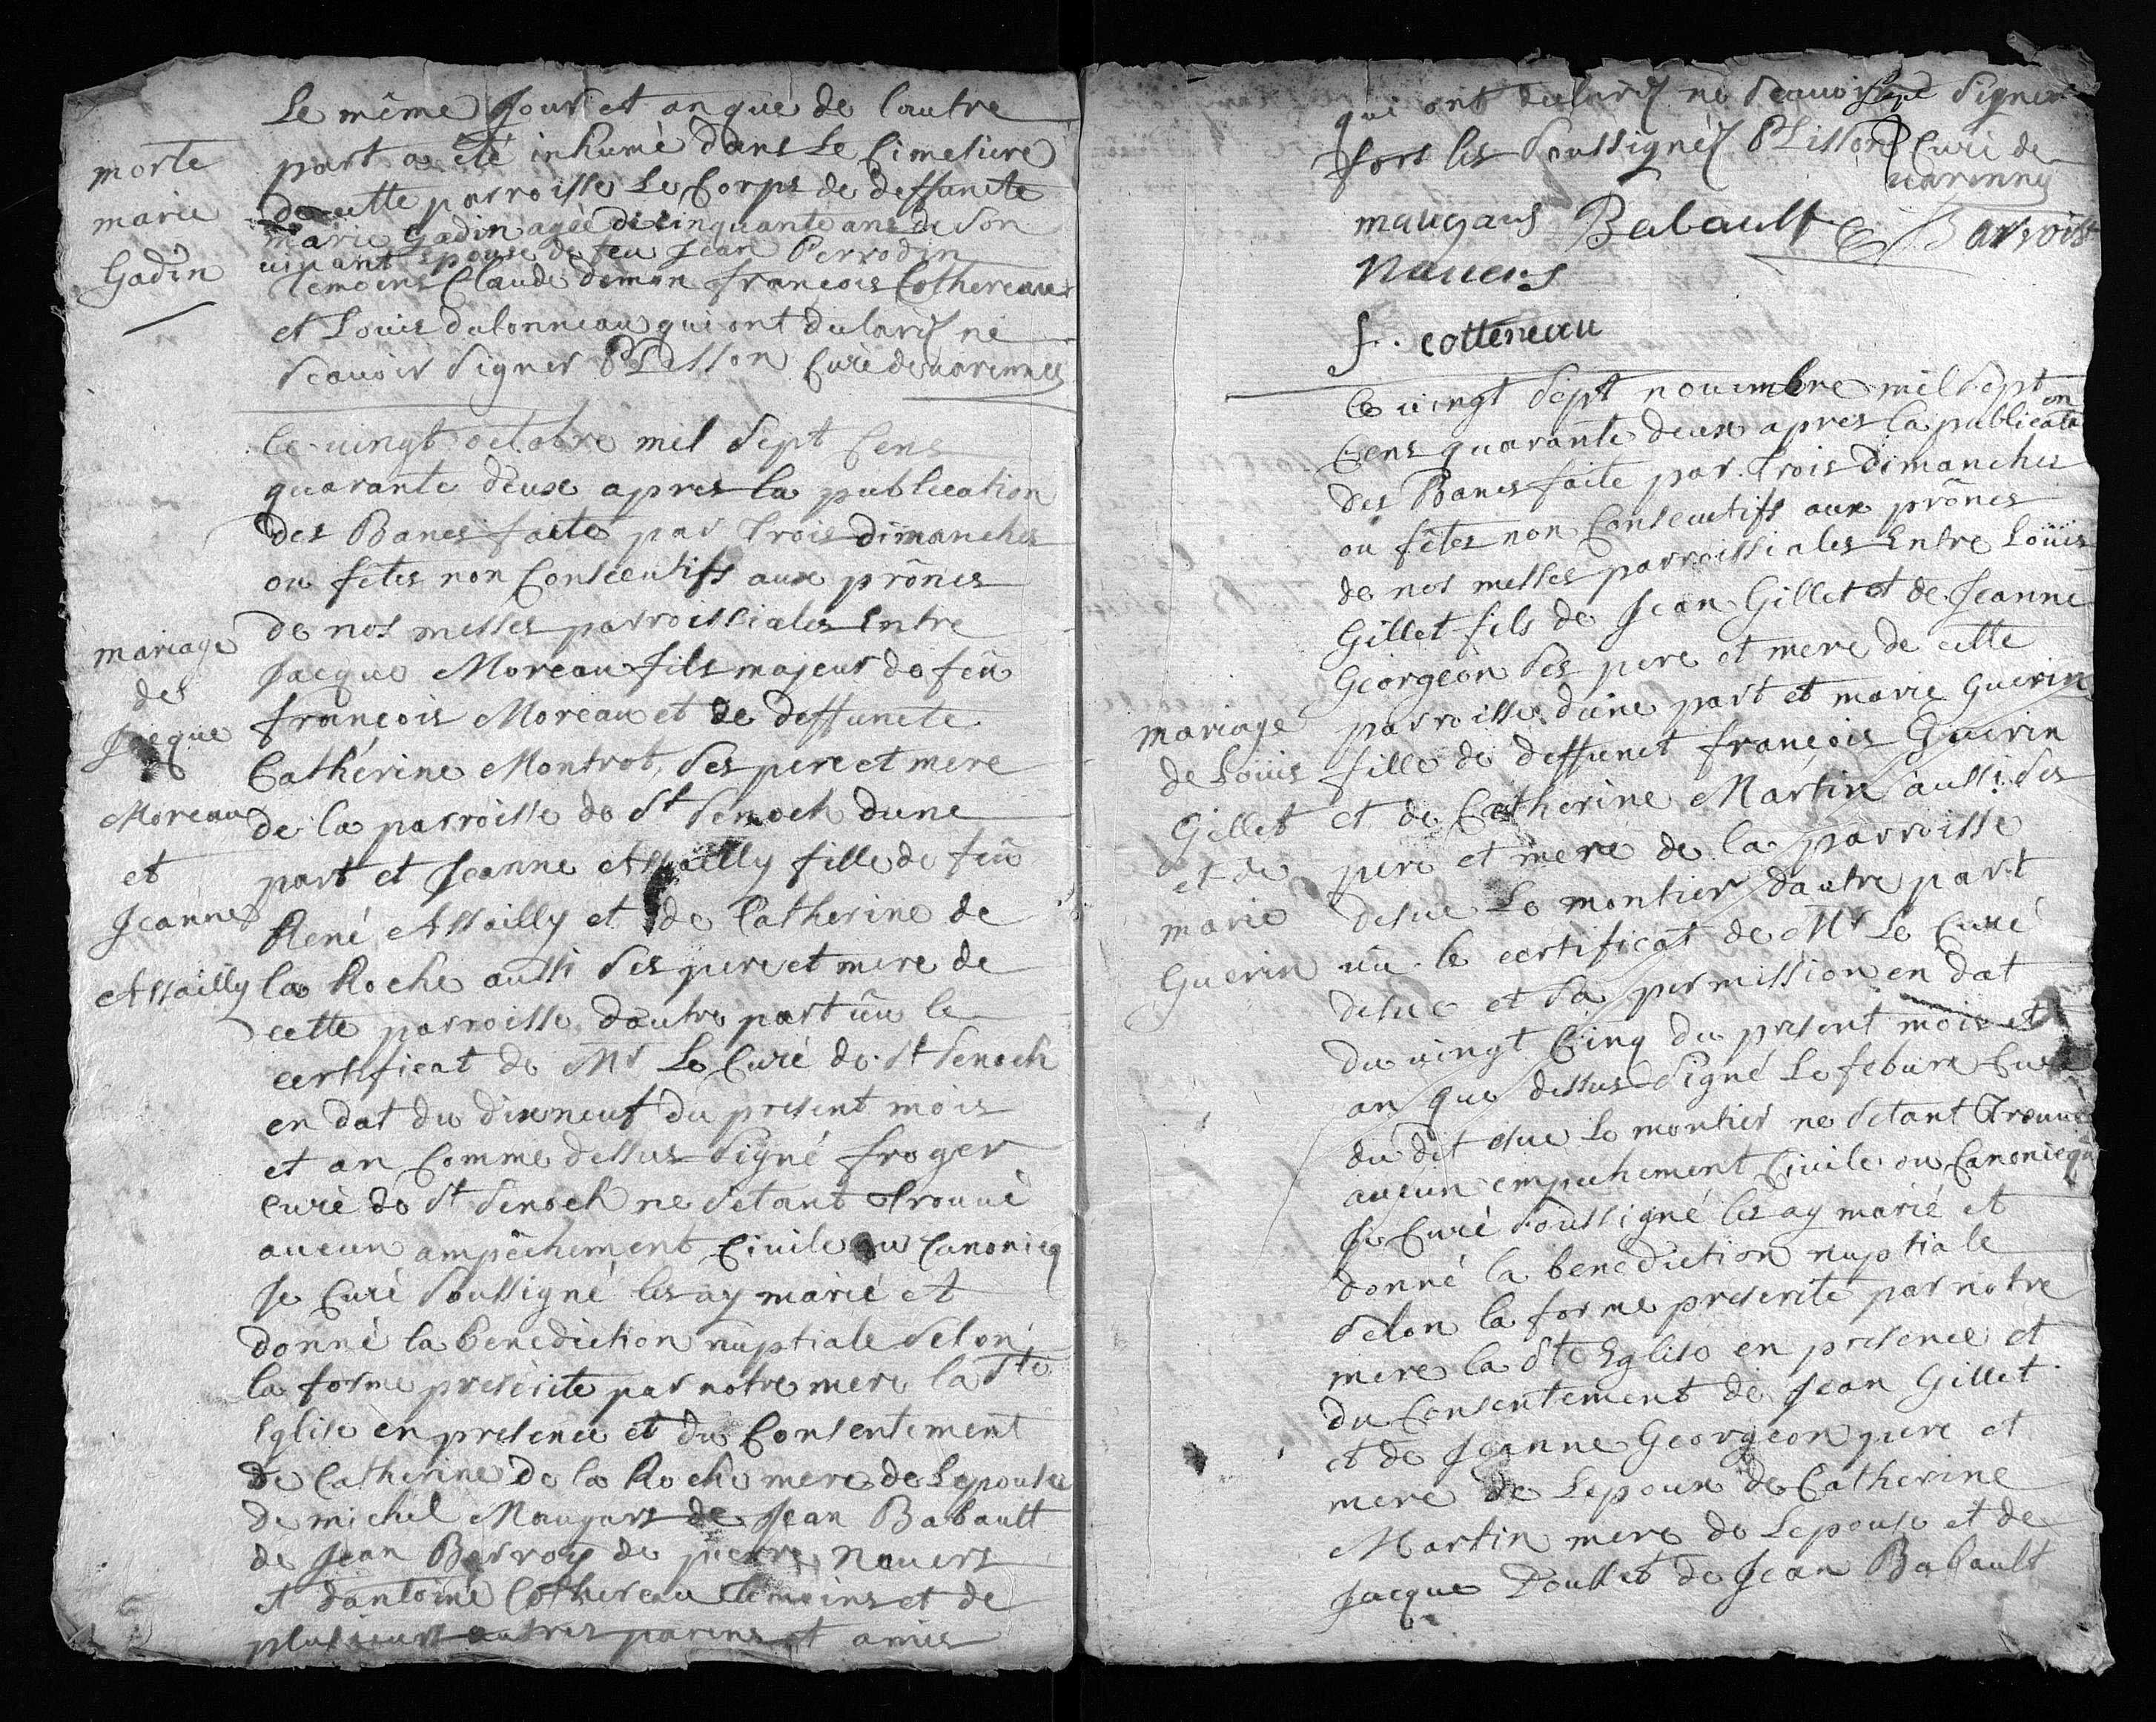 Le même Jour et an que de l'autre
part a été inhumé dans Le Cimetiere
de cette parroisse Le Corps de deffuncte
marie Gadin agée de cinquante ans de Son
vivant Epouse de feu Jean Perrodin
temoins Claude doman françois Cothereau
et Louis dulonneau qui ont dularéz ne
scavoir signer Plisson Curé de varennes
morte
marie
Gadin
Le vingt octobre mil Sept Cens
quarante deux apres la publication
des Bancs faite par trois dimanches
ou fêtes non Consecutifs aux prônes
de nos messes parroissiales Entre
Jacque Moreau fils majeur de feu
françois Moreau et de deffuncte
Cathérine Montrot, Ses pere et mere
de la parroisse de St Senoch dune
part et Jeanne Assailly fille de feu
René Assailly et de Catherine de
la Roche aussi Ses pere et mere de
cette parroisse dautre part vû le
certificat de Mr Le Curé de St Senoch
en dat du dixneuf du present mois
et an Comme dessus Signé froger
curé de St Senoch ne Setant trouvé
aucun ampêchement Civile ou Canonicq
Je Curé Soussigné les ay marié et
donné la benediction nuptiale Selon
la forme prescrite par notre mere la Ste
Eglise en presence et du Consentement
de Catherine de la Roche mere de Lepouse
de michel Maugars de Jean Babault
de Jean Barroy de pierre navers
et dantoine Cothereau temoins et de
plusieurs autres parens et amis
mariage
de
Jacque
Moreau
et
Jeanne
Assailly
qui ont dularéz ne Scavoir Signer
fors les Soussignéz Plisson Curé de
varennes
maugars Babault Barrois
Navers
f. cottereau
Le vingt Sept novembre mil Sept
Cens quarante deux apres la publication
des Bancs faite par trois Dimanches
ou fêtes non Consecutifs aux prônes
de nos messes parroissiales Entre Loüis
Gillet fils de Jean Gillet et de Jeanne
Georgeon Ses pere et mere de cette
parroisse dune part et marie Guerin
fille de deffunct françois Guerin
et de Catherine Martin aussi Ses
pere et mere de la parroisse
desve Le montier dautre part
vû le certificat de Mr Le Curé
desve et Sa permission en dat
du vingt Cinq du present mois et
an que dessus Signé Lefebure Curé
du dit esve Le montier ne Setant trouvé
aucun empechement Civile ou Canonicque
Je Curé Soussigné les ay marié et
donné la benediction nuptiale
Selon la forme prescrite par notre
mere la Ste Eglise en presence et
du Consentement de Jean Gillet
et de Jeanne Georgeon pere et
mere de Lepoux de Catherine
Martin mere de Lepouse et de
Jacque Doussét de Jean Babault
mariage
de Loüis
Gillet
et de
marie
Guerin